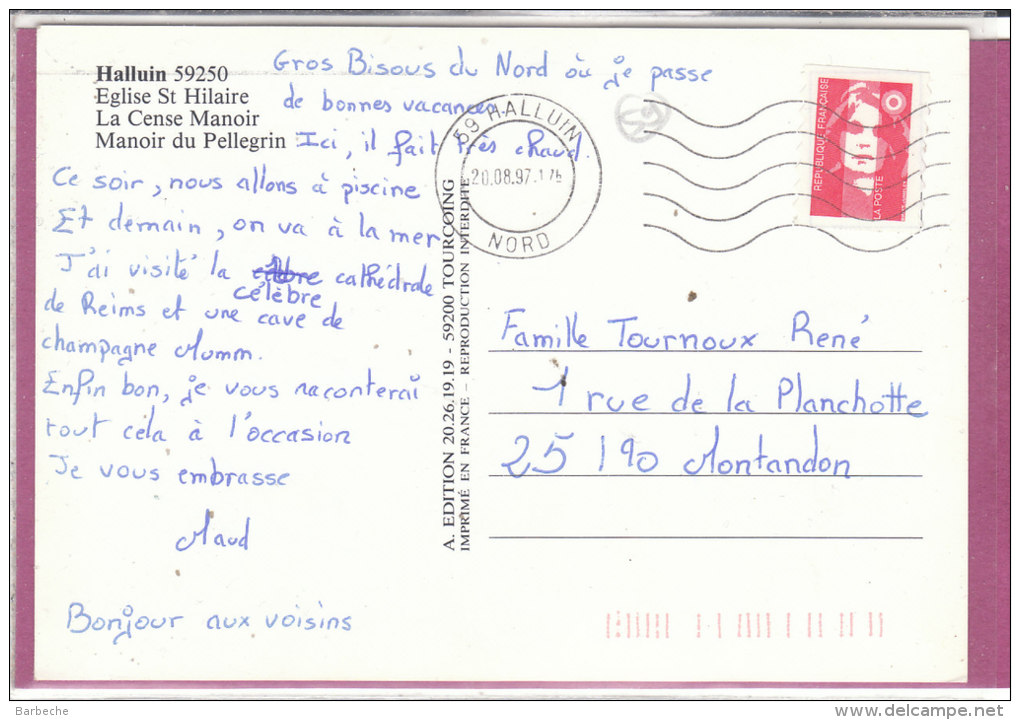 Halluin 59250
Eglise St Hilaire
La Cense Manoir
Manoir du Pellegrin
Gros Bisous du Nord où je passe
de bonnes vacances.
Ici, il fait très chaud.
Ce soir, nous allons à piscine
Et demain, on va à la mer
J'ai visité la cathédrale
célèbre
de Reims et une cave de
champagne Mumm.
Enfin bon, je vous raconterai
tout cela à l'occasion
Je vous embrasse
Maud
Bonjour aux voisins
59 HALLUIN
20.08.97
NORD
REPUBLIQUE FRANÇAISE
LA POSTE
A. EDITION 20.26.19.19 - 59200 TOURCOING
IMPRIMÉ EN FRANCE - REPRODUCTION INTERDITE
Famille Tournoux René
1 rue de la Planchotte
25190 Montandon
Barbeche
www.delcampe.net